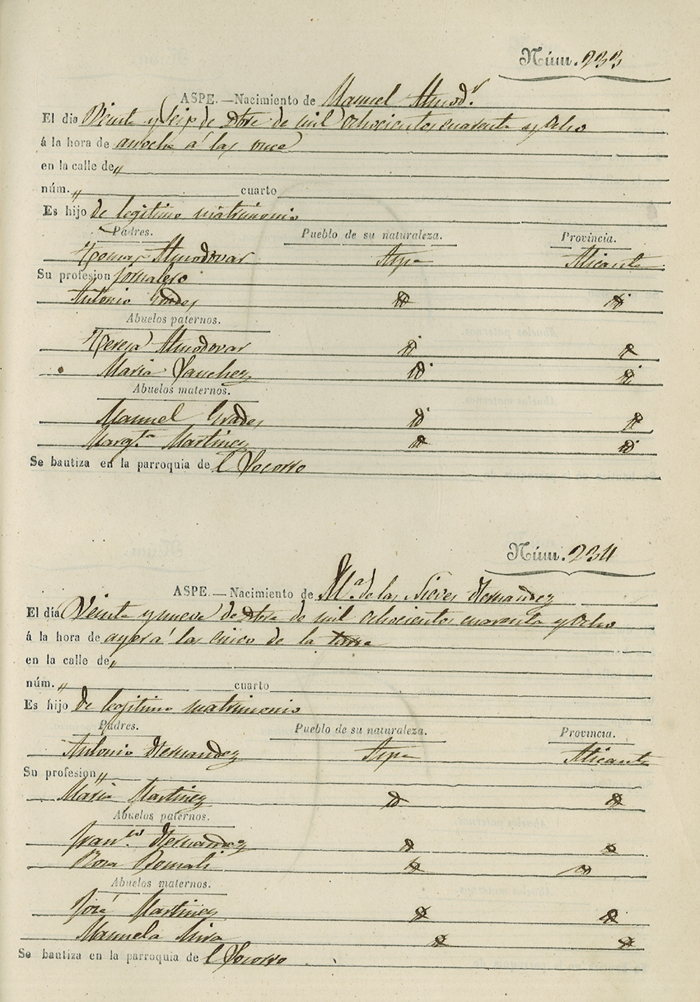 Núm. 233
ASPE.—Nacimiento de Manuel Almod.r
El día Veinte y seis de Dbre de mil ochocientos cuarenta y ocho
á la hora de anoche á las once
en la calle de „
núm. „ cuarto
Es hijo de legitimo matrimonio
Padres. Pueblo de su naturaleza. Provincia.
Tomas Almodovar Aspe Alicante
Su profesion Jornalero
Antonia id id
Abuelos paternos.
Teresa Almodovar id id
Maria Sanchez id id
Abuelos maternos.
Manuel id id
Margta Martinez id id
Se bautiza en la parroquia de l Socorro
Núm. 234
ASPE.—Nacimiento de M.a de las Nieves Hernandez
El día Veinte y nueve de Dbre de mil ochocientos cuarenta y ocho
á la hora de ayer á las cinco de la tarde
en la calle de „
núm. „ cuarto
Es hijo de legitimo matrimonio
Padres. Pueblo de su naturaleza. Provincia.
Antonio Hernandez Aspe Alicante
Su profesion „
Maria Martinez id id
Abuelos paternos.
Fran.co Hernandez id id
Rosa id id
Abuelos maternos.
José Martinez id id
Manuela Mira id id
Se bautiza en la parroquia de l Socorro